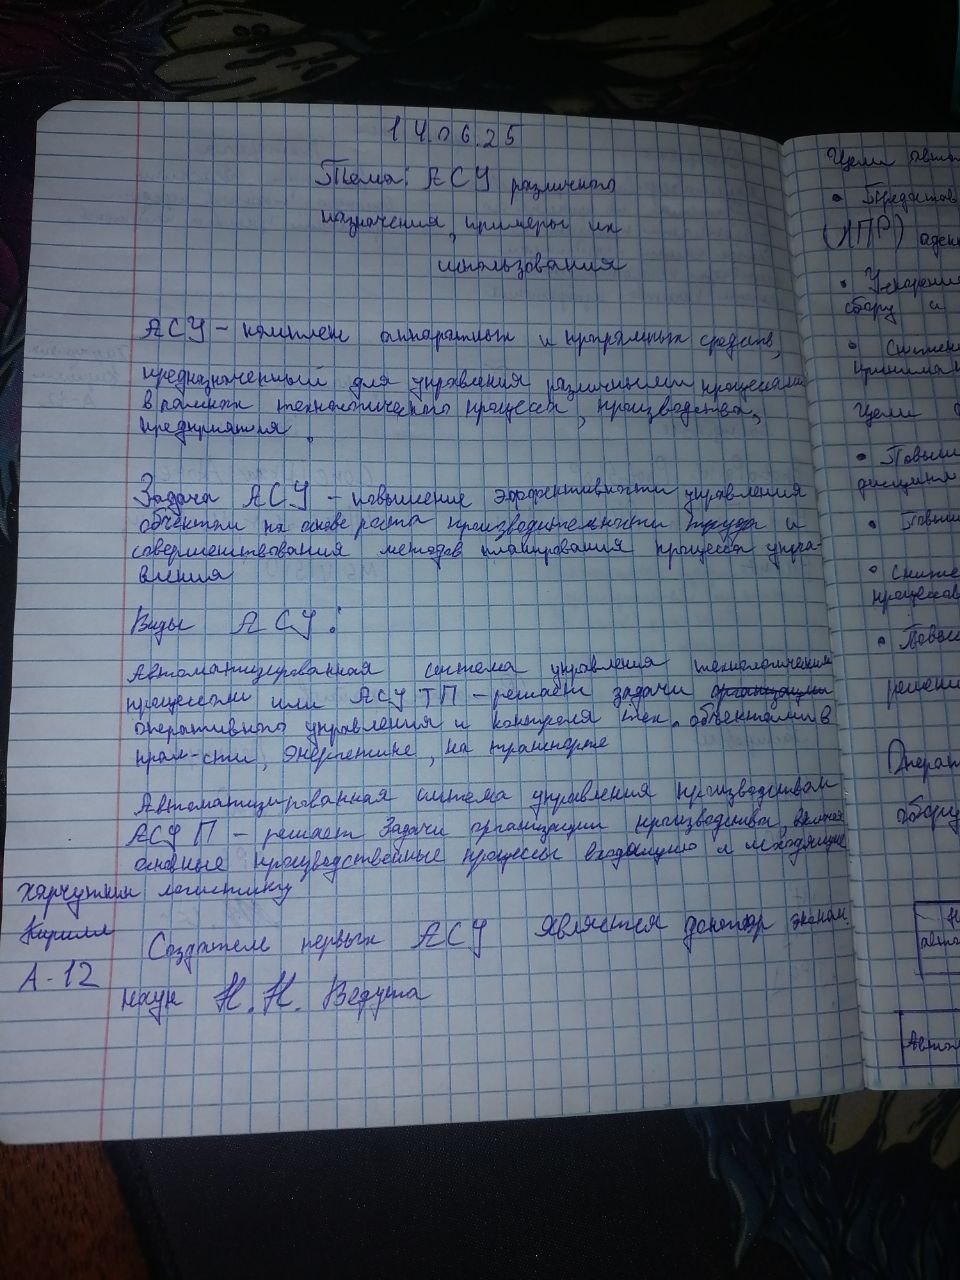 14.06.25
Тема: АСУ различного
назначения, примеры их
использования
АСУ – комплекс аппаратных и программных средств,
предназначенный для управления различными процессами
в рамках технологического процесса, производства,
предприятия.
Задача АСУ – повышение эффективности управления
объектом на основе роста производительности труда и
совершенствования методов планирования процесса упра-
вления
Виды АСУ:
Автоматизированная система управления технологическими
процессами или АСУ ТП – решает задачи организации
оперативного управления и контроля тех. объектами в
пром-сти, энергетике, на транспорте
Автоматизированная система управления производством
АСУ П – решает задачи организации производства, включая
основные производственные процессы входящую и исходящую
логистику
Харчуткин
Кирилл
А-12
Создателем первых АСУ является доктор эконом.
наук Н. И. Ведута
Цели
• Предостав
(ЛПР)
• Ускорение
сбору и
• Снижен
принима
Цели
• Повыш
дисципли
• Повыш
• Сниже
процессов
• Повыш
решени
Операт
обору
авто
Автом